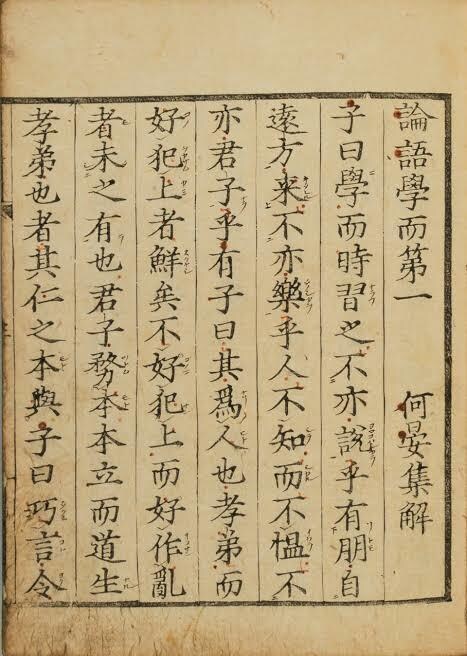 論語學而第一 何晏集解
子曰學而時習之不亦說乎有朋自
遠方来不亦樂乎人不知而不慍不
亦君子乎有子曰其爲人也孝弟而
好犯上者鮮矣不好犯上而好作亂
者未之有也君子務本本立而道生
孝弟也者其仁之本與子曰巧言令